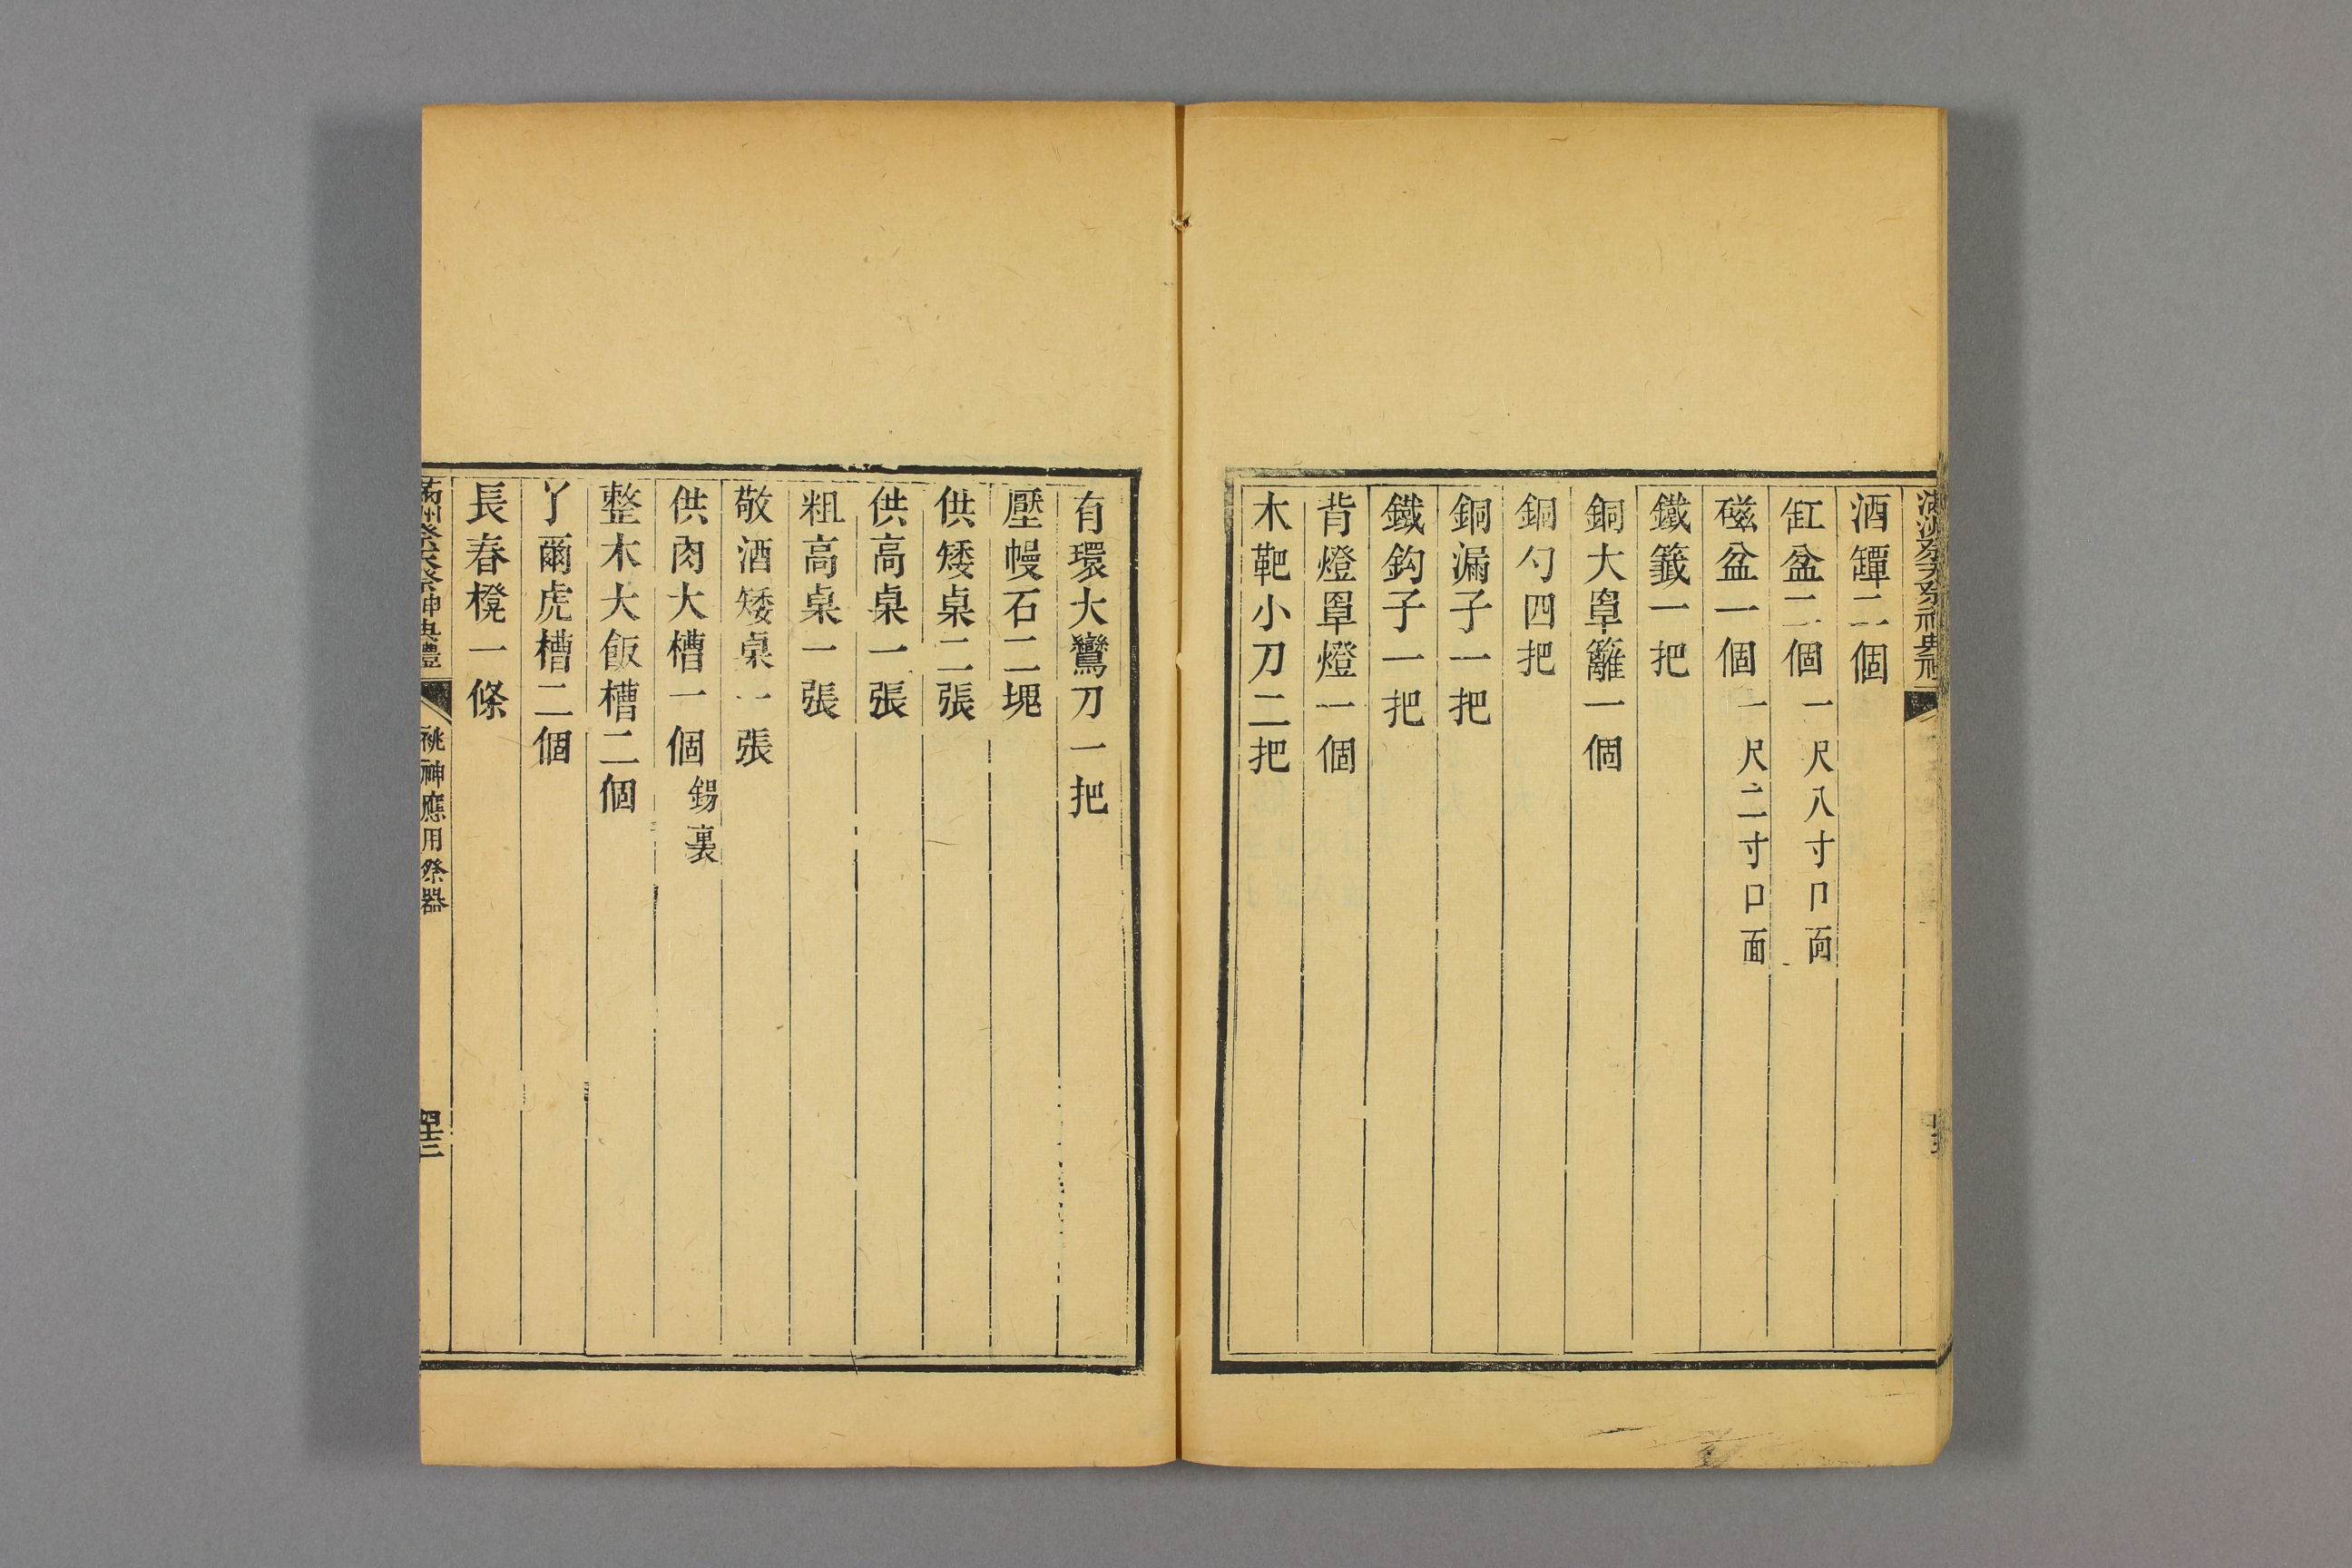 酒罈二個
缸盆二個 一尺八寸口面
磁盆一個 一尺二寸口面
鐵籤一把
銅大罩籬一個
銅勺四把
銅漏子一把
鐵鈎子一把
背燈罩燈一個
木靶小刀二把
有環大鸞刀一把
壓幔石二塊
供矮桌二張
供高桌一張
粗高桌一張
敬酒矮桌一張
供肉大槽一個 錫裏
整木大飯槽二個
丫爾虎槽二個
長春櫈一條
滿洲祭天祭神典禮 祧神應用祭器